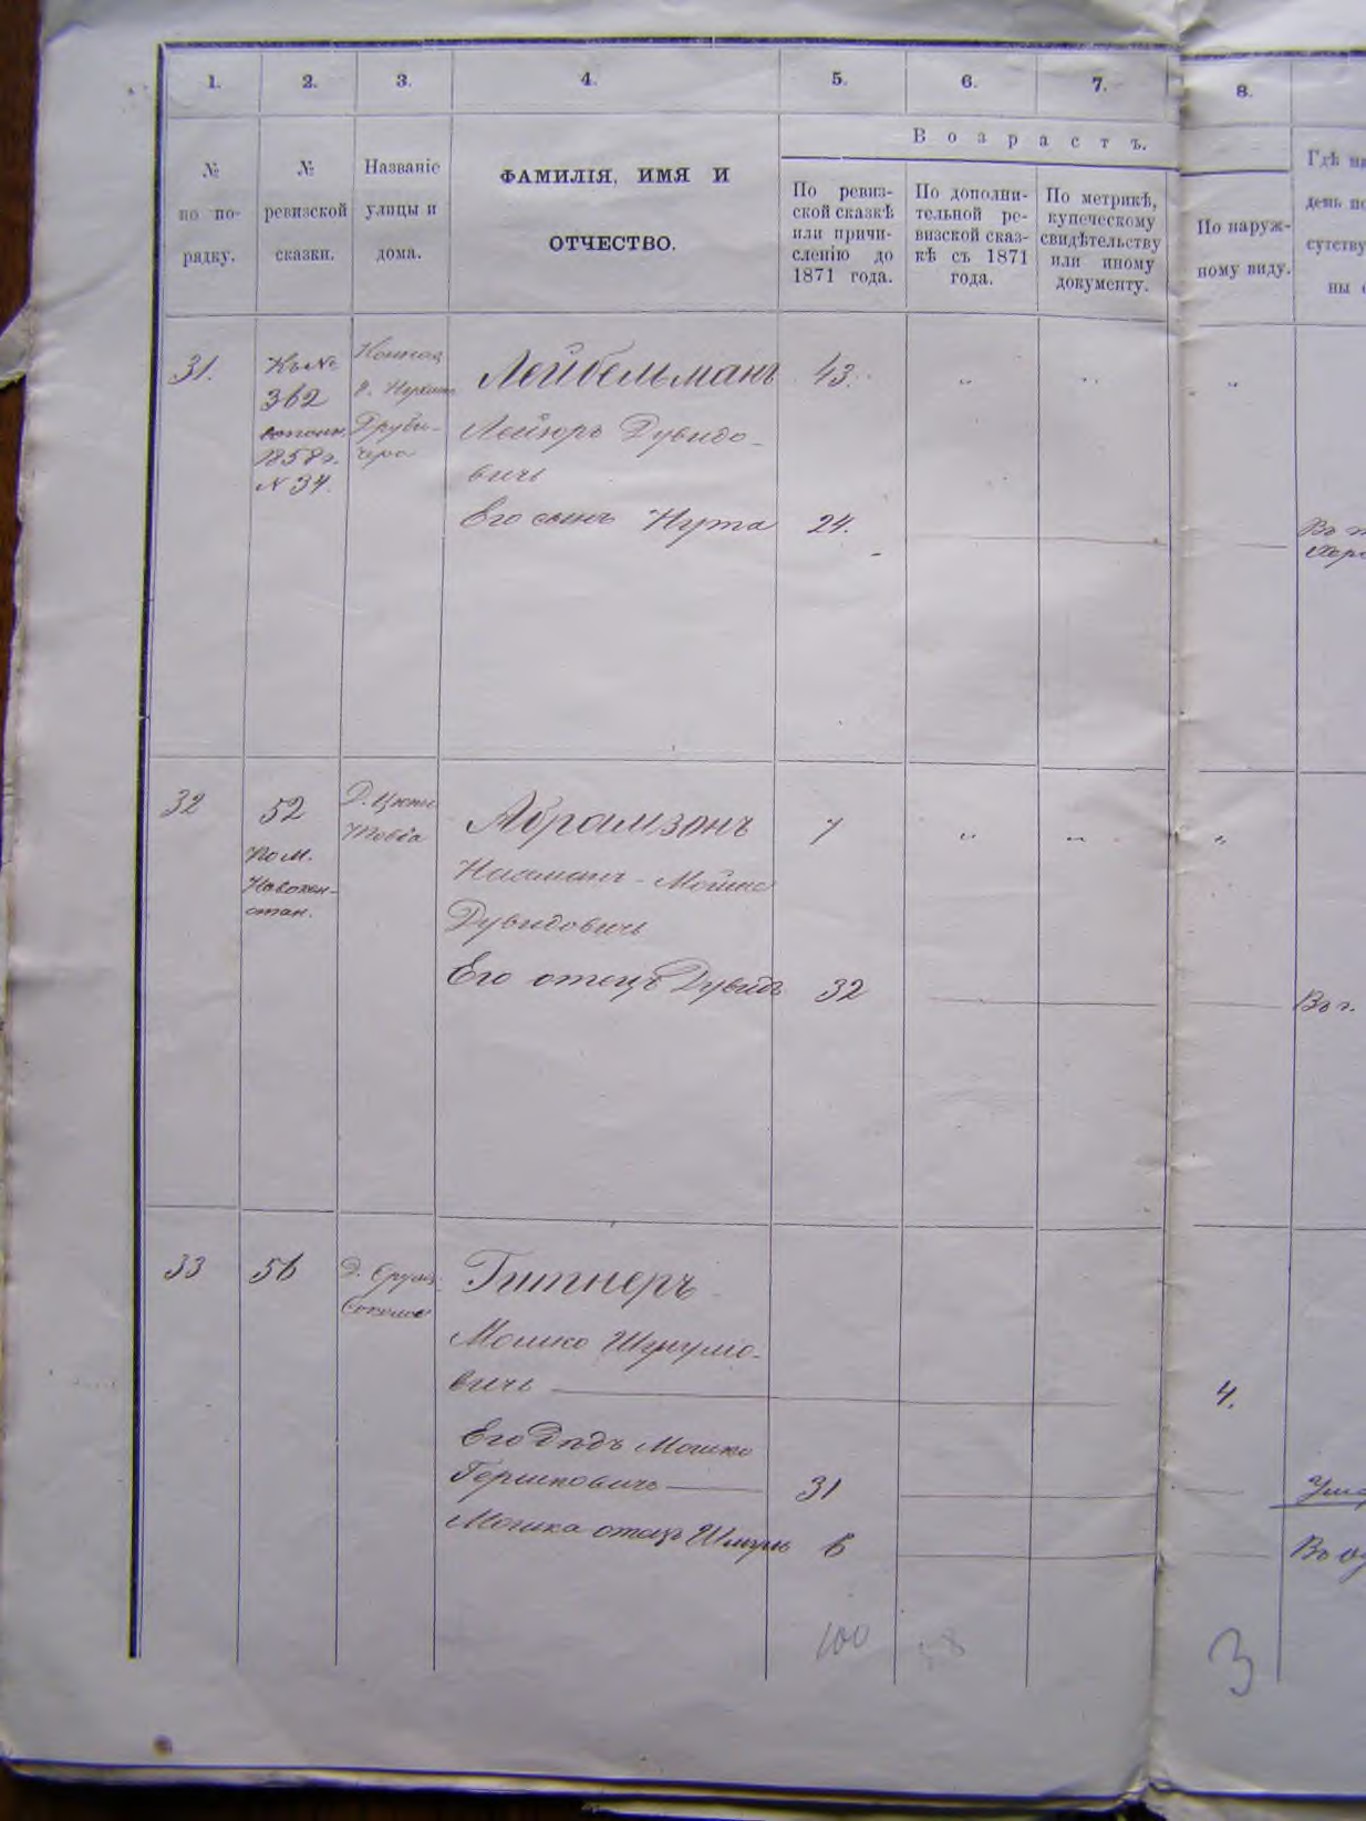 1.
2.
3.
4.
5.
6.
7.
8.
№
по по-
рядку.
№
ревизской
сказки.
Названіе
улицы и
дома.
ФАМИЛІЯ, ИМЯ И
ОТЧЕСТВО.
Возрастъ.
По ревиз-
ской сказкѣ
или причи-
сленію до
1871 года.
По дополни-
тельной ре-
визской сказ-
кѣ съ 1871
года.
По метрикѣ,
купеческому
свидѣтельству
или иному
документу.
По наруж-
ному виду.
Гдѣ на
день по
сутству
ны
31.
Къ №
362
1858 г.
№ 34.
Конная
д.
Лейбельманъ
Лейзоръ Дувидо-
вичь
Его сынъ Нута
43.
24.
32
52
по м.
Новокон-
стан.
Абрамзонъ
Нахманъ-Мойше
Дувидовичь
Его отецъ Дувидъ
7
32
Въ г.
33
56
Д.
Гитнеръ
Мошко Шмулио-
вичь
Его дѣдъ Мошко
Гершковичь
Мошка отецъ Шмуль
31
6
4.
Въ
100
3